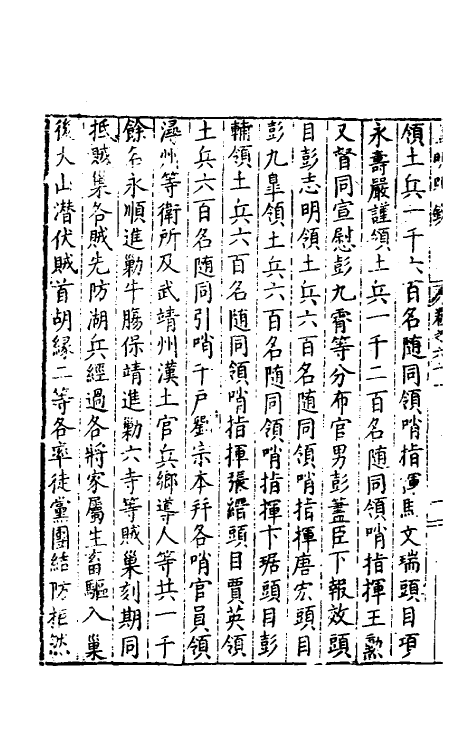 皇明□錄　卷之六十一
領土兵一千六百名隨同領哨指揮馬文瑞頭目項
永壽嚴謹領土兵一千二百名隨同領哨指揮王勲
又督同宣慰彭九霄等分布官男彭藎臣下報效頭
目彭志明領土兵六百名隨同領哨指揮唐宏頭目
彭九臯領土兵六百名隨同領哨指揮卞琚頭目彭
輔領土兵六百名隨同領哨指揮張縉頭目賈英領
土兵六百名隨同引哨千戶劉宗本并各哨官員領
潯州等衛所及武靖州漢土官兵鄉導人等共一千
餘名永順進勦牛腸保靖進勦六寺等賊巢刻期同
抵賊巢各賊先防湖兵經過各將家屬生畜驅入巢
後大山潛伏賊首胡緣二等各率徒黨團結防拒然